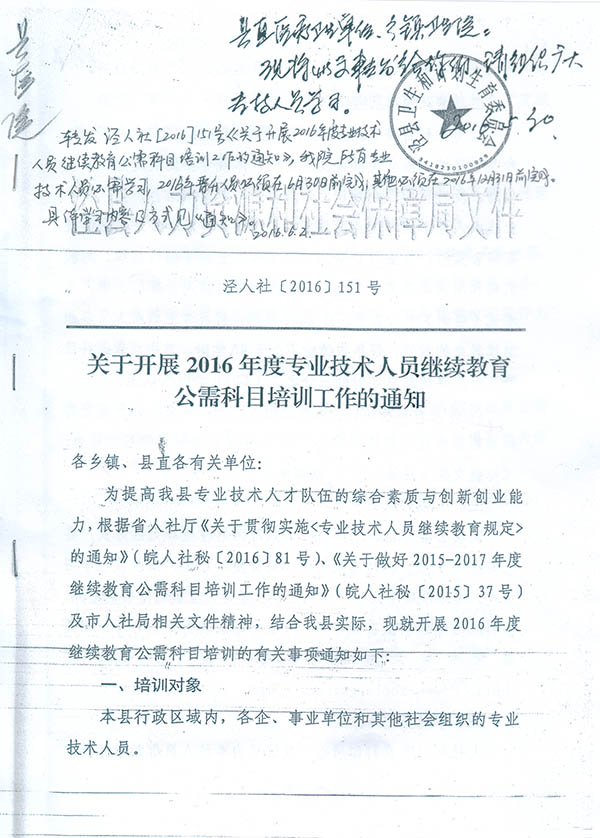 县医院
县直医疗卫生单位、各镇卫生院:
现将此文转发给你们，请组织广大
专技人员学习。
泾县卫生和计划生育委员会
2016.5.30
转发 泾人社[2016]151号《关于开展2016年度专业技术
人员继续教育公需科目培训工作的通知》，我院所有专业
技术人员必须学习，2016年晋升人员必须在6月30日前完成，其他必须在2016年12月31日前完成。
具体学习内容及方式见《通知》。
2016.6.2
泾县人力资源和社会保障局文件
泾人社〔2016〕151号
关于开展 2016 年度专业技术人员继续教育
公需科目培训工作的通知
各乡镇、县直各有关单位:
为提高我县专业技术人才队伍的综合素质与创新创业能
力，根据省人社厅《关于贯彻实施<专业技术人员继续教育规定>
的通知》（皖人社秘〔2016〕81号）、《关于做好 2015-2017 年度
继续教育公需科目培训工作的通知》（皖人社秘〔2015〕37号）
及市人社局相关文件精神，结合我县实际，现就开展 2016 年度
继续教育公需科目培训的有关事项通知如下:
一、培训对象
本县行政区域内，各企、事业单位和其他社会组织的专业
技术人员。